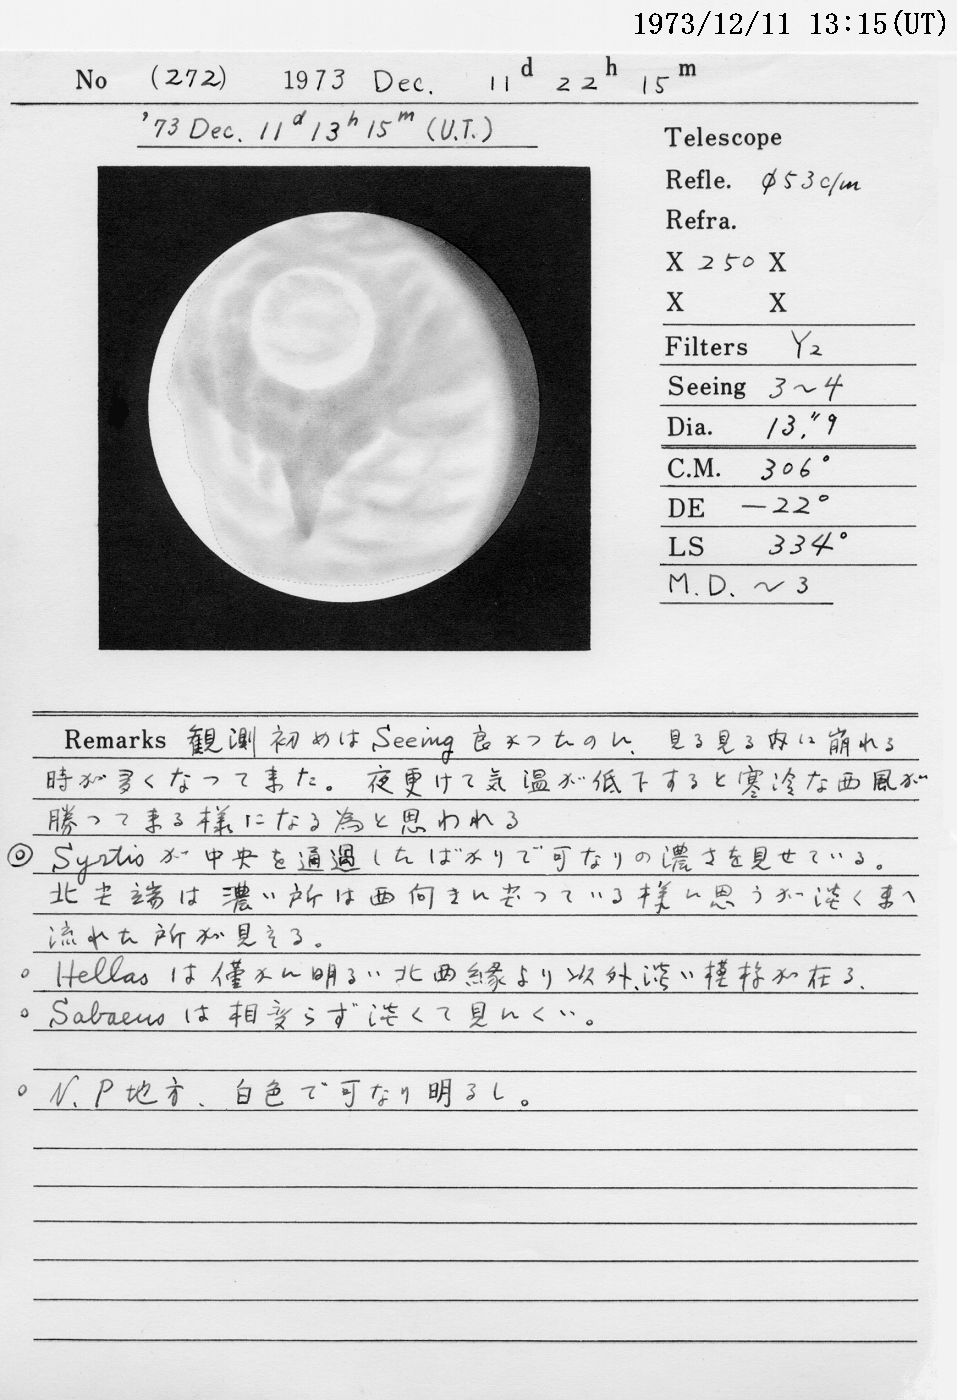 1973/12/11 13:15(UT)
No (272) 1973 Dec. 11d 22h 15m
'73 Dec. 11d 13h 15m (U.T.)
Telescope
Refle. φ53c/m
Refra.
X 250 X
X X
Filters Y2
Seeing 3～4
Dia. 13."9
C.M. 306°
DE －22°
LS 334°
M.D. ～3
Remarks 観測初めはSeeing良かったのに、見る見る内に崩れる
時が多くなって来た。夜更けて気温が低下すると寒冷な西風が
勝って来る様になる為と思われる
◎ Syrtisが中央を通過したばかりで可なりの濃さを見せている。
北尖端は濃い所は西向きに尖っている様に思うが淡く東へ
流れた所が見える。
○ Hellasは僅かに明るい北西縁より以外、淡い模様が在る.
○ Sabaeusは相変らず淡くて見にくい。
○ N.P地方、白色で可なり明るし。